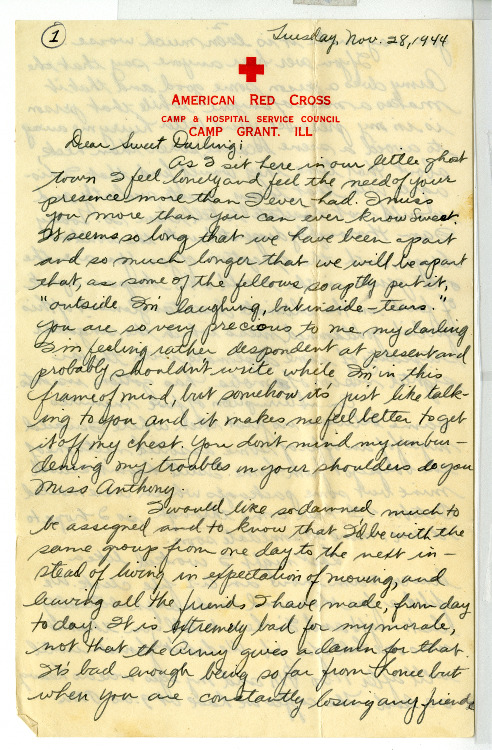 1
Tuesday, Nov. 28, 1944
AMERICAN RED CROSS
CAMP & HOSPITAL SERVICE COUNCIL
CAMP GRANT. ILL
Dear Sweet Darling;
As I sit here in our little ghost
town I feel lonely and feel the need of your
presence more than I ever had. I miss
you more than you can ever know Sweet.
It seems so long that we have been apart
and so much longer that we will be apart
that, as some of the fellows so aptly put it,
"outside I'm laughing, but inside - tears."
You are so very precious to me, my darling
I'm feeling rather despondent at present and
probably shouldn't write while I'm in this
frame of mind, but somehow it's just like talk-
ing to you and it makes me feel better to get
it off my chest. You don't mind my unbur-
dening my troubles in your shoulders do you
Miss Anthony.
I would like so damned much to
be assigned and to know that I'd be with the
same group from one day to the next in-
stead of living in expectation of moving, and
leaving all the friends I have made, from day
to day. It is extremely bad for my morale,
not that the Army gives a damn for that.
It's bad enough being so far from home but
when you are constantly losing any friends